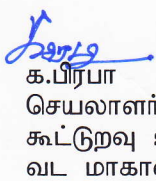 க.பிரபா
செயலாளர்
கூட்டுறவு
வட மாகா